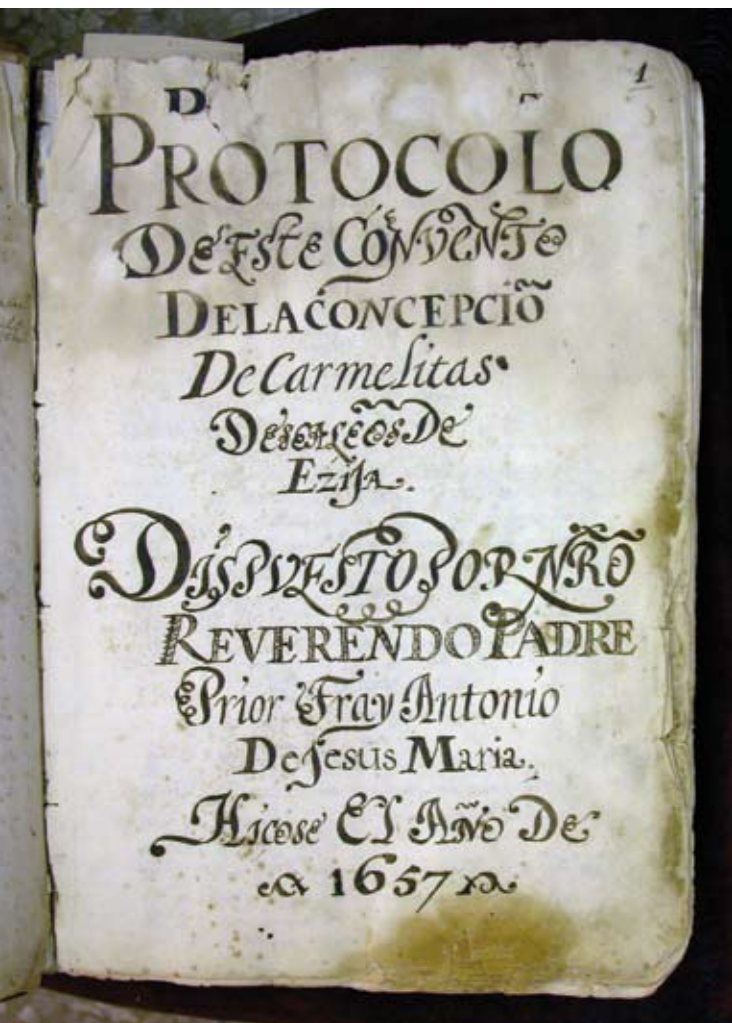 1
D
PROTOCOLO
De Este CONVENTO
DE LA CONCEPCIÕ
De Carmelitas
DescalÇos De
Ezija.
DISPVESTO POR NRÕ
REVERENDO PADRE
Prior Fray Antonio
De Jesus Maria.
Hiçose El Año De
1657